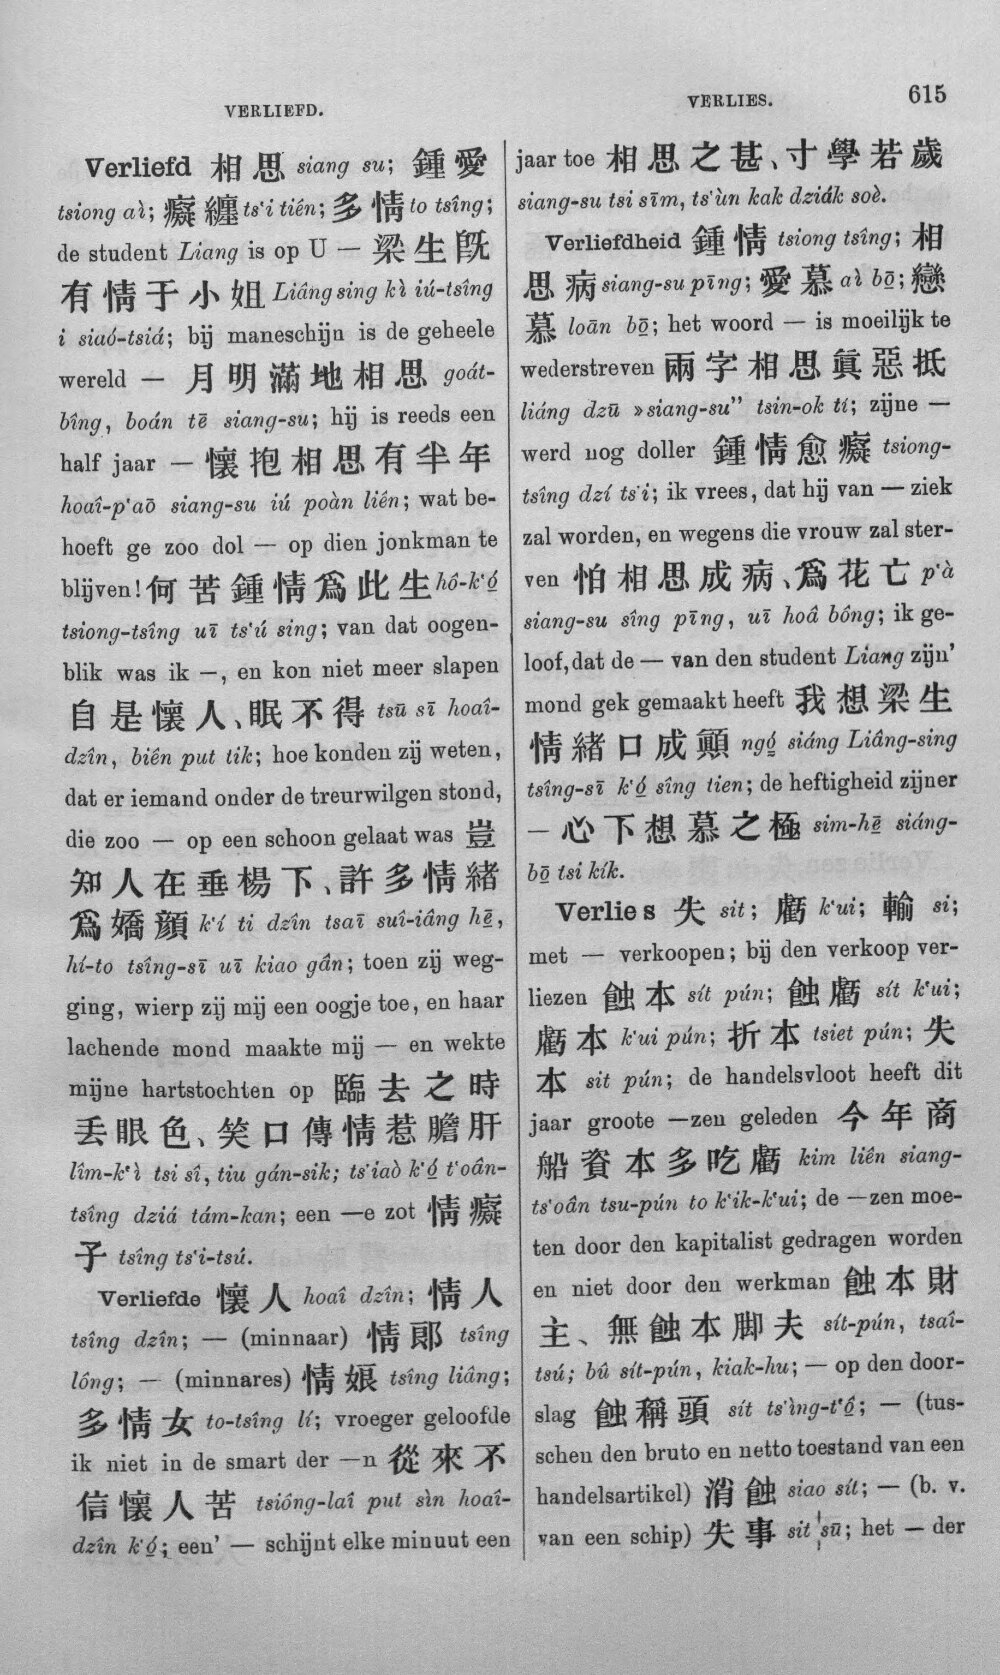 VERLIEFD.
VERLIES.
615
Verliefd 相思 siang su; 鍾愛
tsiong aì; 癡纏 ts‘i tiên; 多情 to tsîng;
de student Liang is op U — 梁生旣
有情于小姐 Liâng sing kì iú-tsîng
i siaó-tsiá; bij maneschijn is de geheele
wereld — 月明滿地相思 goát-
bîng, boán tē siang-su; hij is reeds een
half jaar — 懷抱相思有半年
hoaî-p‘aō siang-su iú poàn liên; wat be-
hoeft ge zoo dol — op dien jonkman te
blijven! 何苦鍾情爲此生 hô-k‘ó̱
tsiong-tsîng uī ts‘ú sing; van dat oogen-
blik was ik —, en kon niet meer slapen
自是懷人、眠不得 tsū sī hoaî-
dzîn, biên put tik; hoe konden zij weten,
dat er iemand onder de treurwilgen stond,
die zoo — op een schoon gelaat was 豈
知人在垂楊下、許多情緒
爲嬌顔 k‘í ti dzîn tsaī suî-iâng hē̱,
hí-to tsîng-sī uī kiao gân; toen zij weg-
ging, wierp zij mij een oogje toe, en haar
lachende mond maakte mij — en wekte
mijne hartstochten op 臨去之時
丢眼色、笑口傳情惹膽肝
lîm-k‘ì tsi sî, tiu gán-sik; ts‘iaò k‘ó̱ t‘oân-
tsîng dziá tám-kan; een —e zot 情癡
子 tsîng ts‘i-tsú.
Verliefde 懷人 hoaî dzîn; 情人
tsîng dzîn; — (minnaar) 情郎 tsîng
lông; — (minnares) 情娘 tsîng liâng;
多情女 to-tsîng lí; vroeger geloofde
ik niet in de smart der —n 從來不
信懷人苦 tsiông-laî put sìn hoaî-
dzîn k‘ó̱; een’ — schijnt elke minuut een
jaar toe 相思之甚、寸學若歲
siang-su tsi sīm, ts‘ùn kak dziák soè.
Verliefdheid 鍾情 tsiong tsîng; 相
思病 siang-su pīng; 愛慕 aì bō̱; 戀
慕 loān bō̱; het woord — is moeilijk te
wederstreven 兩字相思眞惡抵
liáng dzū »siang-su” tsin-ok tí; zijne —
werd nog doller 鍾情愈癡 tsiong-
tsîng dzí ts‘i; ik vrees, dat hij van — ziek
zal worden, en wegens die vrouw zal ster-
ven 怕相思成病、爲花亡 p‘à
siang-su sîng pīng, uī hoâ bông; ik ge-
loof, dat de — van den student Liang zijn’
mond gek gemaakt heeft 我想梁生
情緒口成顚 ngó̱ siáng Liâng-sing
tsîng-sī k‘ó̱ sîng tien; de heftigheid zijner
— 心下想慕之極 sim-hē̱ siáng-
bō̱ tsi kík.
Verlies 失 sit; 虧 k‘ui; 輸 si;
met — verkoopen; bij den verkoop ver-
liezen 蝕本 sít pún; 蝕虧 sít k‘ui;
虧本 k‘ui pún; 折本 tsiet pún; 失
本 sit pún; de handelsvloot heeft dit
jaar groote —zen geleden 今年商
船資本多吃虧 kim liên siang-
ts‘oân tsu-pún to k‘ik-k‘ui; de —zen moe-
ten door den kapitalist gedragen worden
en niet door den werkman 蝕本財
主、無蝕本脚夫 sít-pún, tsaî-
tsú; bû sít-pún, kiak-hu; — op den door-
slag 蝕稱頭 sít ts‘ìng-t‘ô̱; — (tus-
schen den bruto en netto toestand van een
handelsartikel) 消蝕 siao sít; — (b. v.
van een schip) 失事 sit sū; het — der